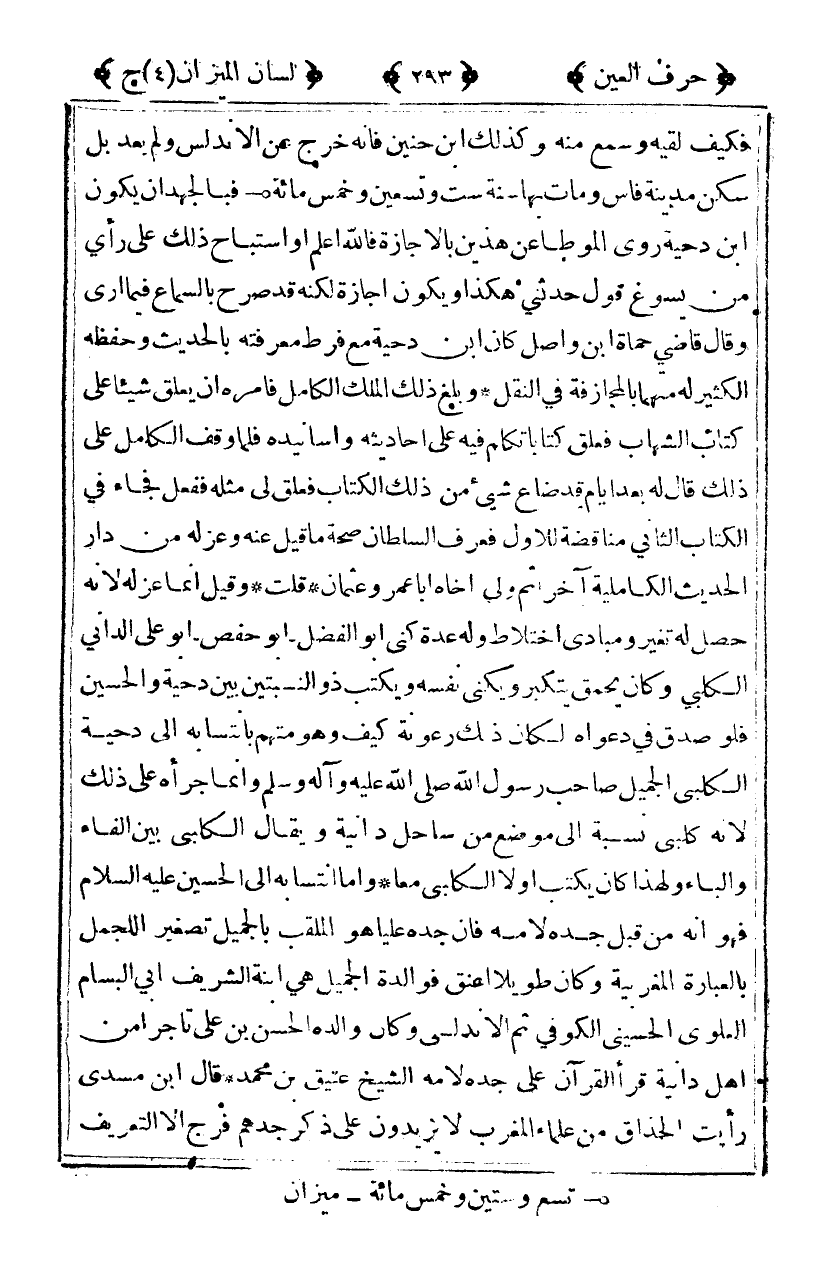 ﴿ حرف العين ﴾ ﴿ ٢٩٣ ﴾ ﴿ لسان الميزان (٤) ج ﴾
فكيف لقيه وسمع منه وكذلك ابن حنين فانه خرج عن الاندلس ولم يعد بل
سكن مدينة فاس ومات بها سنة ست وتسعين وخمس مائة ه‍ـ فبالجهد ان يكون
ابن دحية روى الموطا عن هذين بالاجازة فالله اعلم او استباح ذلك على رأي
من يسوغ قول حدثني هكذا ويكون اجازة لكنه قد صرح بالسماع فيما ارى
وقال قاضي حماة ابن واصل كان ابن دحية مع فرط معرفته بالحديث وحفظه
الكثير له متهما بالمجازفة في النقل * وبلغ ذلك الملك الكامل فامره ان يعلق شيئا على
كتاب الشهاب فعلق كتابا تكلم فيه على احاديثه واسانيده فلما وقف الكامل على
ذلك قال له بعد ايام قد ضاع شيئ من ذلك الكتاب فعلق لى مثله ففعل فجاء في
الكتاب الثاني مناقضة للاول فعرف السلطان صحة ما قيل عنه وعزله من دار
الحديث الكاملية آخر اثم ولي اخاه ابا عمر وعثمان * قلت * وقيل انما عزله لانه
حصل له تغير ومبادى اختلاط وله عدة كنى ابو الفضل ـ ابو حفص ـ ابو على الدانى
الكلبي وكان يحمق يتكبر ويكنى نفسه ويكتب ذو النسبتين بين دحية والحسين
فلو صدق في دعواه لكان ذلك رعونة كيف وهو متهم بانتسابه الى دحية
الكلبى الجميل صاحب رسول الله صلى الله عليه وآله وسلم وانما جرأه على ذلك
لانه كلبى نسبة الى موضع من ساحل دانية ويقال الكلبى بين الفاء
والباء ولهذا كان يكتب اولا الكلبى معا * واما انتسابه الى الحسين عليه السلام
فهو انه من قبل جده لامه فان جده عليا هو الملقب بالجميل تصغير اللجمل
بالعبارة المغربية وكان طويلا اعنق فوالدة الجميل هي ابنة الشريف ابي البسام
العلوى الحسيني الكوفي ثم الاندلسى وكان والده الحسن بن على تاجرا من
اهل دانية قرأ القرآن على جده لامه الشيخ عتيق بن محمد * قال ابن مسدى
رأيت الحذاق من علماء المغرب لا يزيدون على ذكر جدهم فرج الا التعريف
ه‍ـ تسع وستين وخمس مائة ـ ميزان